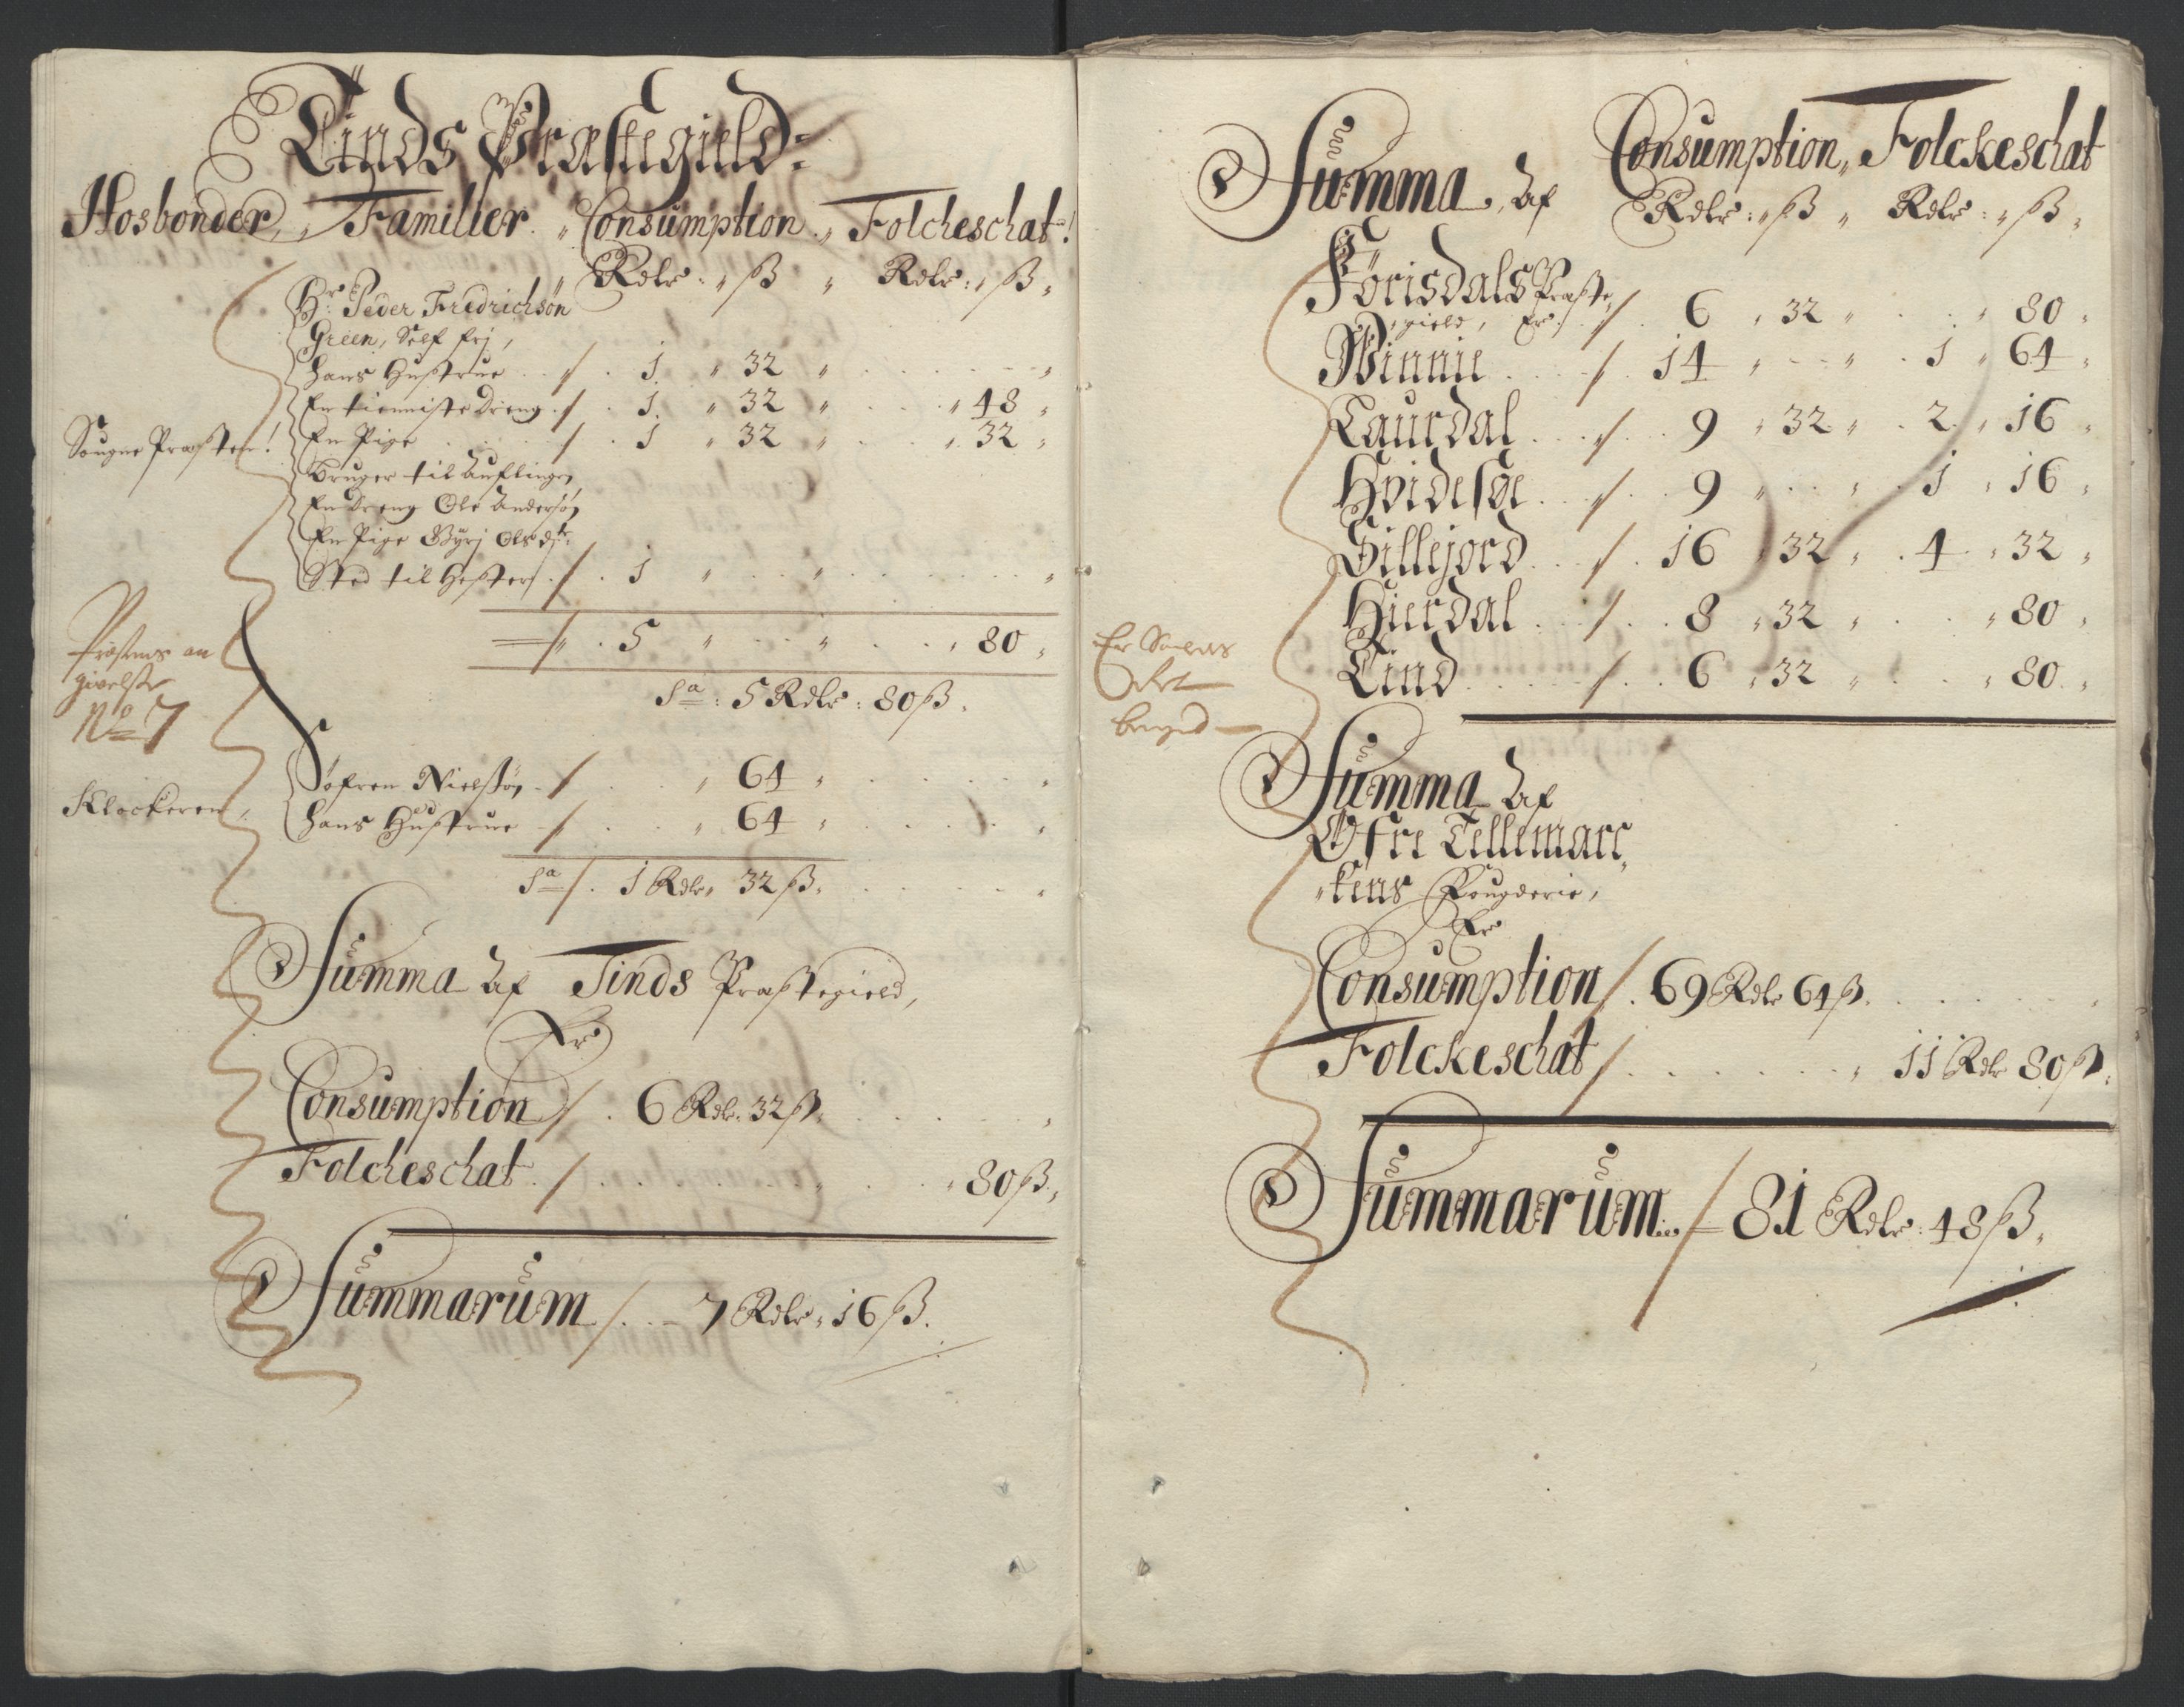 Tinds Præstegield:
Hosbonder, Familier. Consumption. Folcheschat!
Rdlr: ß Rdlr: ß
Hr: Peder Fredrichsøn
Green, Self frj,
hans Hustrue . . / . 1 " 32 "
En tienniste dreng . / . 1 " 32 " . . . " 48 "
Sougne Præsten! En Pige . . . / . 1 " 32 " . . " 32 "
Bruger til Auflingen
En dreng Ole Andersøn
En Pige Gyrj Olsdtr:
Sted til Hester . / . 1 " . . "
/ . 5 " . . " . . " 80 "
Præstens an
givelse
No 7
Sa: 5 Rdlr: 80 ß.
Søfren Nielsøn . / . . " 64 "
Klockeren, hans Hustrue . / . . " 64 "
Sa / . 1 Rdlr. 32 ß.
Summa Af Tinds Præstegield,
Er
Consumption / . 6 Rdlr. 32 ß.
Folcheschat . / . . . . 80 ß.
Summarum / . . 7 Rdlr. 16 ß.
Consumption, Folckeschat
Summa, Af Rdlr: ß " Rdlr: ß "
Förisdals Præste
gield, Er . / . 6 " 32 " . . " 80 "
Winnie . . . / . 14 " - - " . 1 " 64 "
Laurdal . . . / . . 9 " 32 " . 2 " 16 "
Hvidesøe . . / . . 9 " . . " . 1 " 16 "
Sillejord . . / . 16 " 32 " . 4 " 32 "
Hierdal . . . / . . 8 " 32 " . . " 80 "
Tind . . . . / . . 6 " 32 " . . " 80 "
Er Saaledes
Summa Af
Øfre Tellemarc
kens Fougderie,
Er
Consumption / . 69 Rdlr 64 ß.
Folckeschat / . . . . . 11 Rdlr 80 ß.
Summarum . . / 81 Rdlr: 48 ß.